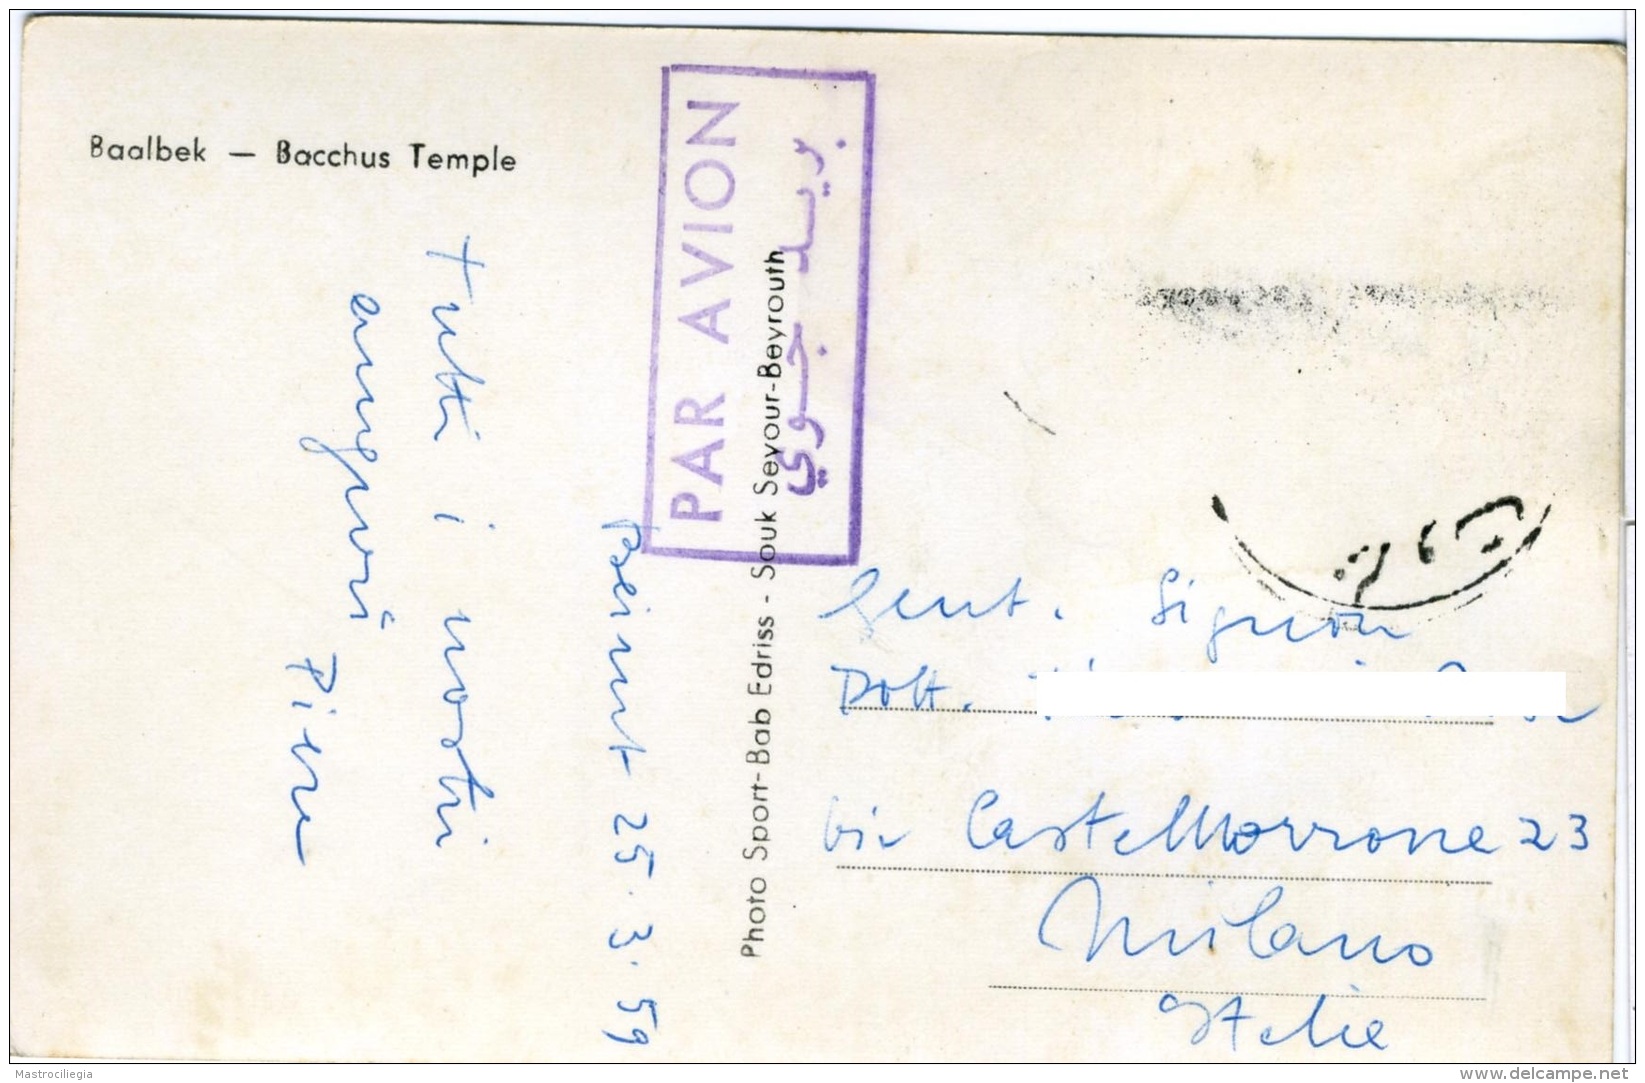 Baalbek — Bacchus Temple
PAR AVION
بريد جوي
Photo Sport-Bab Edriss - Souk Seyour-Beyrouth
Beirut 25.3.59
Tutti i nostri
auguri
Gent. Signor
Dott.
via Castelmorrone 23
Milano
Italie
Mastrociliegia
www.delcampe.net